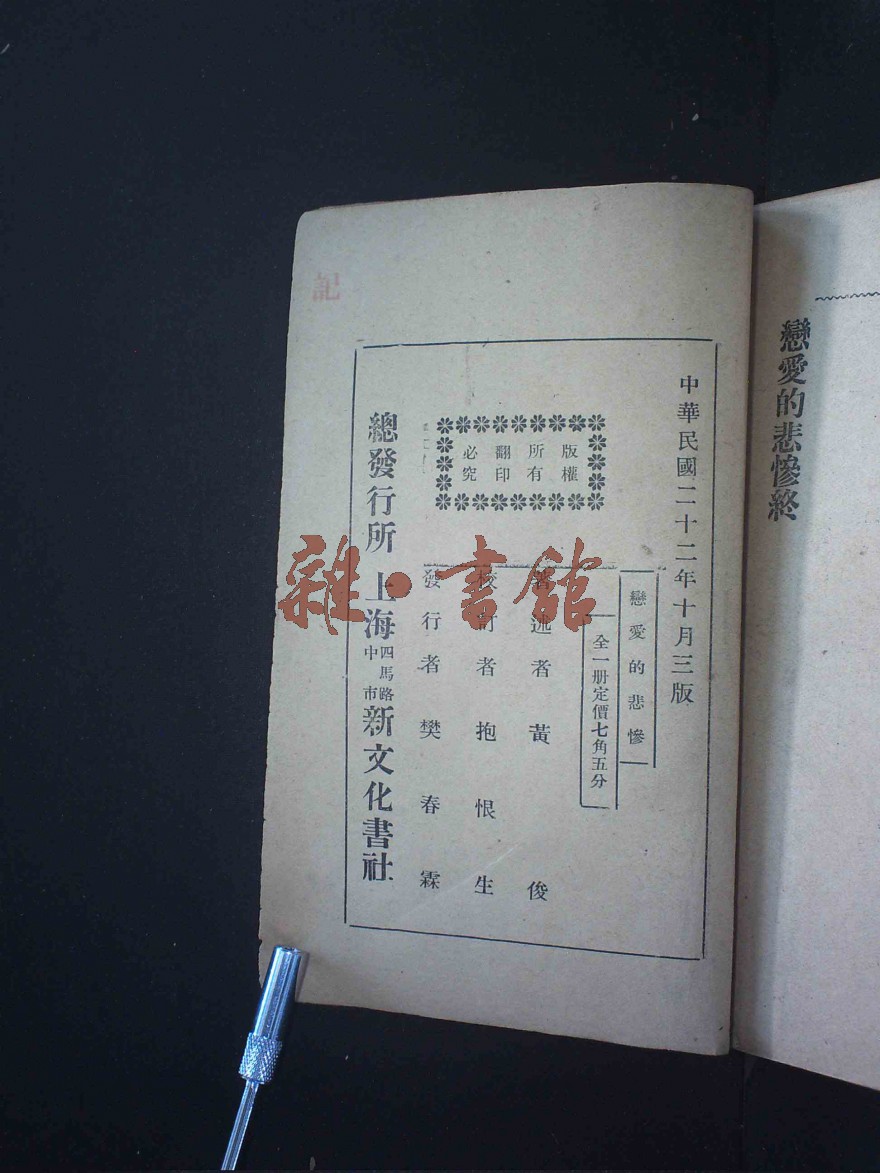 戀愛的悲慘終
中華民國二十二年十月三版
戀愛的悲慘
全一册定價七角五分
版權
所有
翻印
必究
著述者 黃俊
校訂者 抱恨生
發行者 樊春霖
總發行所 上海四馬路中市新文化書社
記
雜·書館